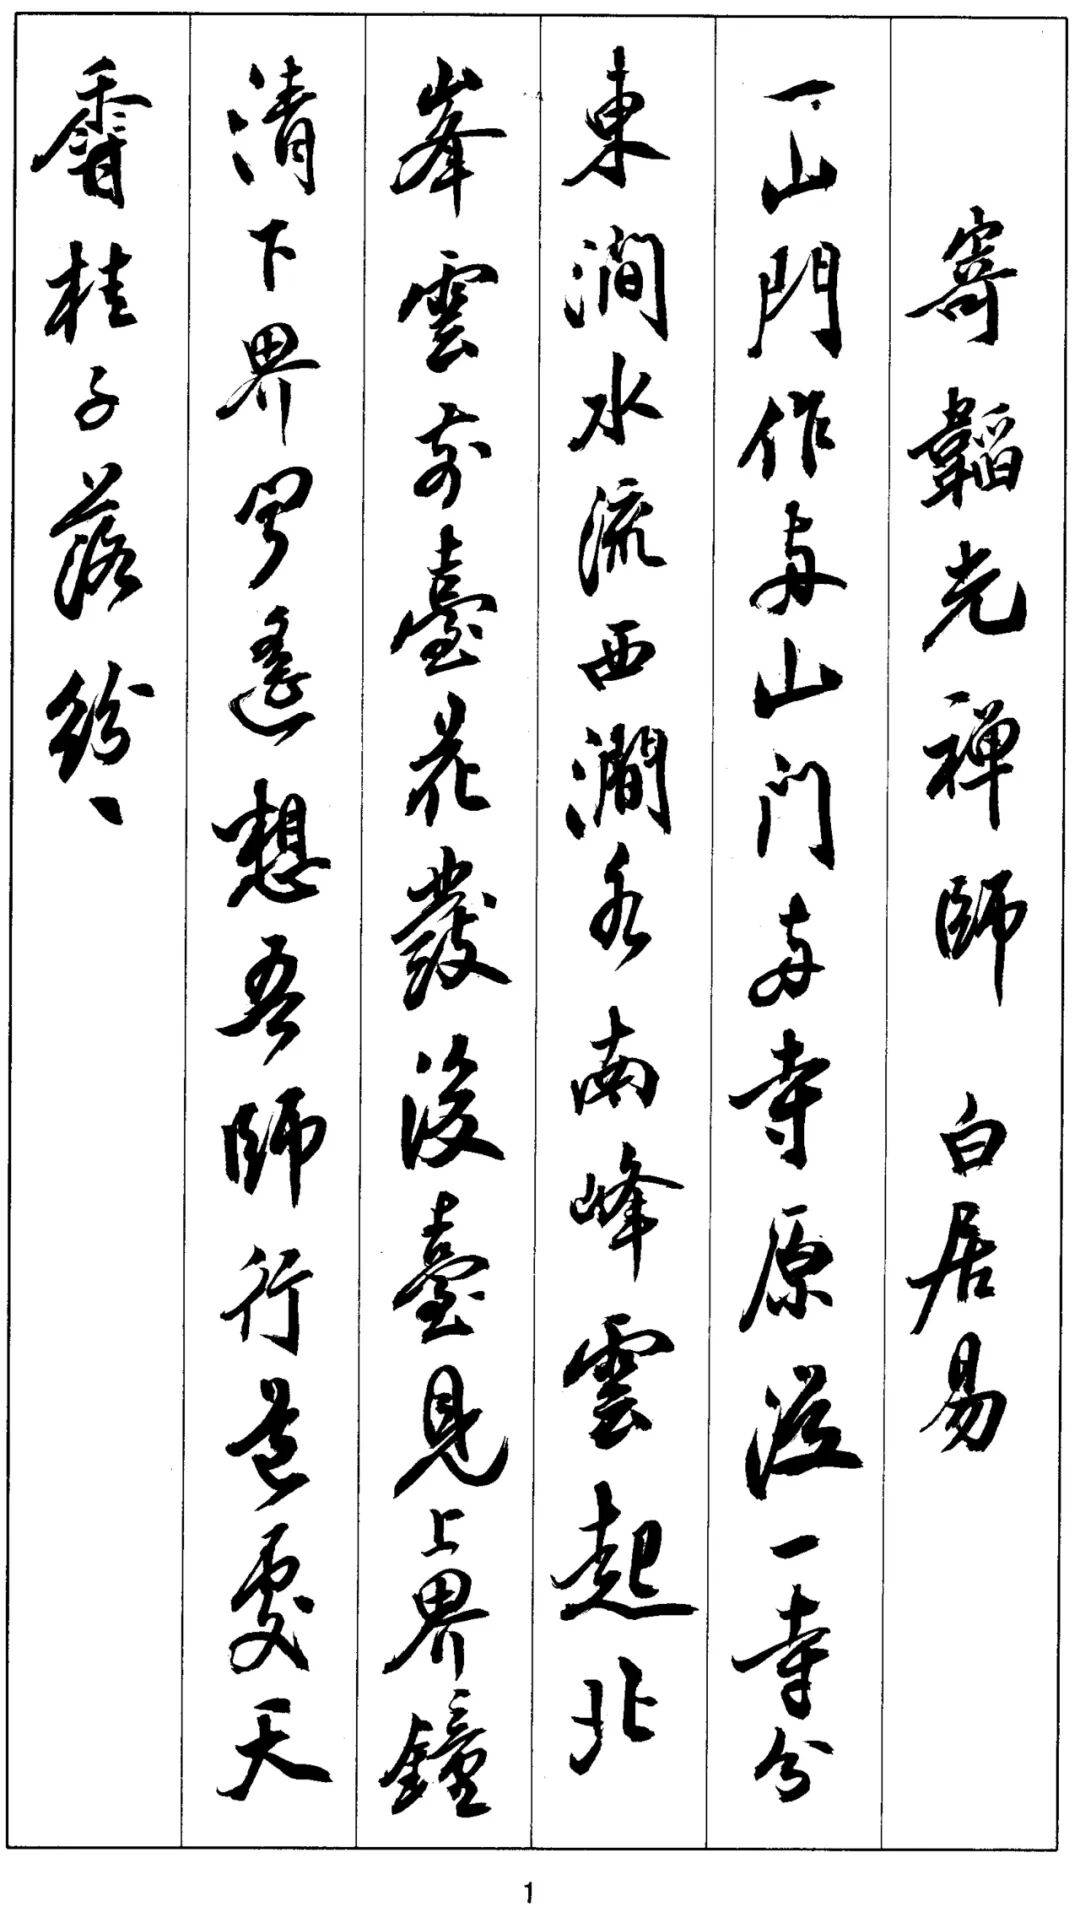 寄韜光禪師 白居易
一山門作兩山門兩寺原從一寺分
東澗水流西澗水南峰雲起北
峯雲前臺花發後臺見上界鐘
清下界聞遙想吾師行道處天
香桂子落紛〻
1